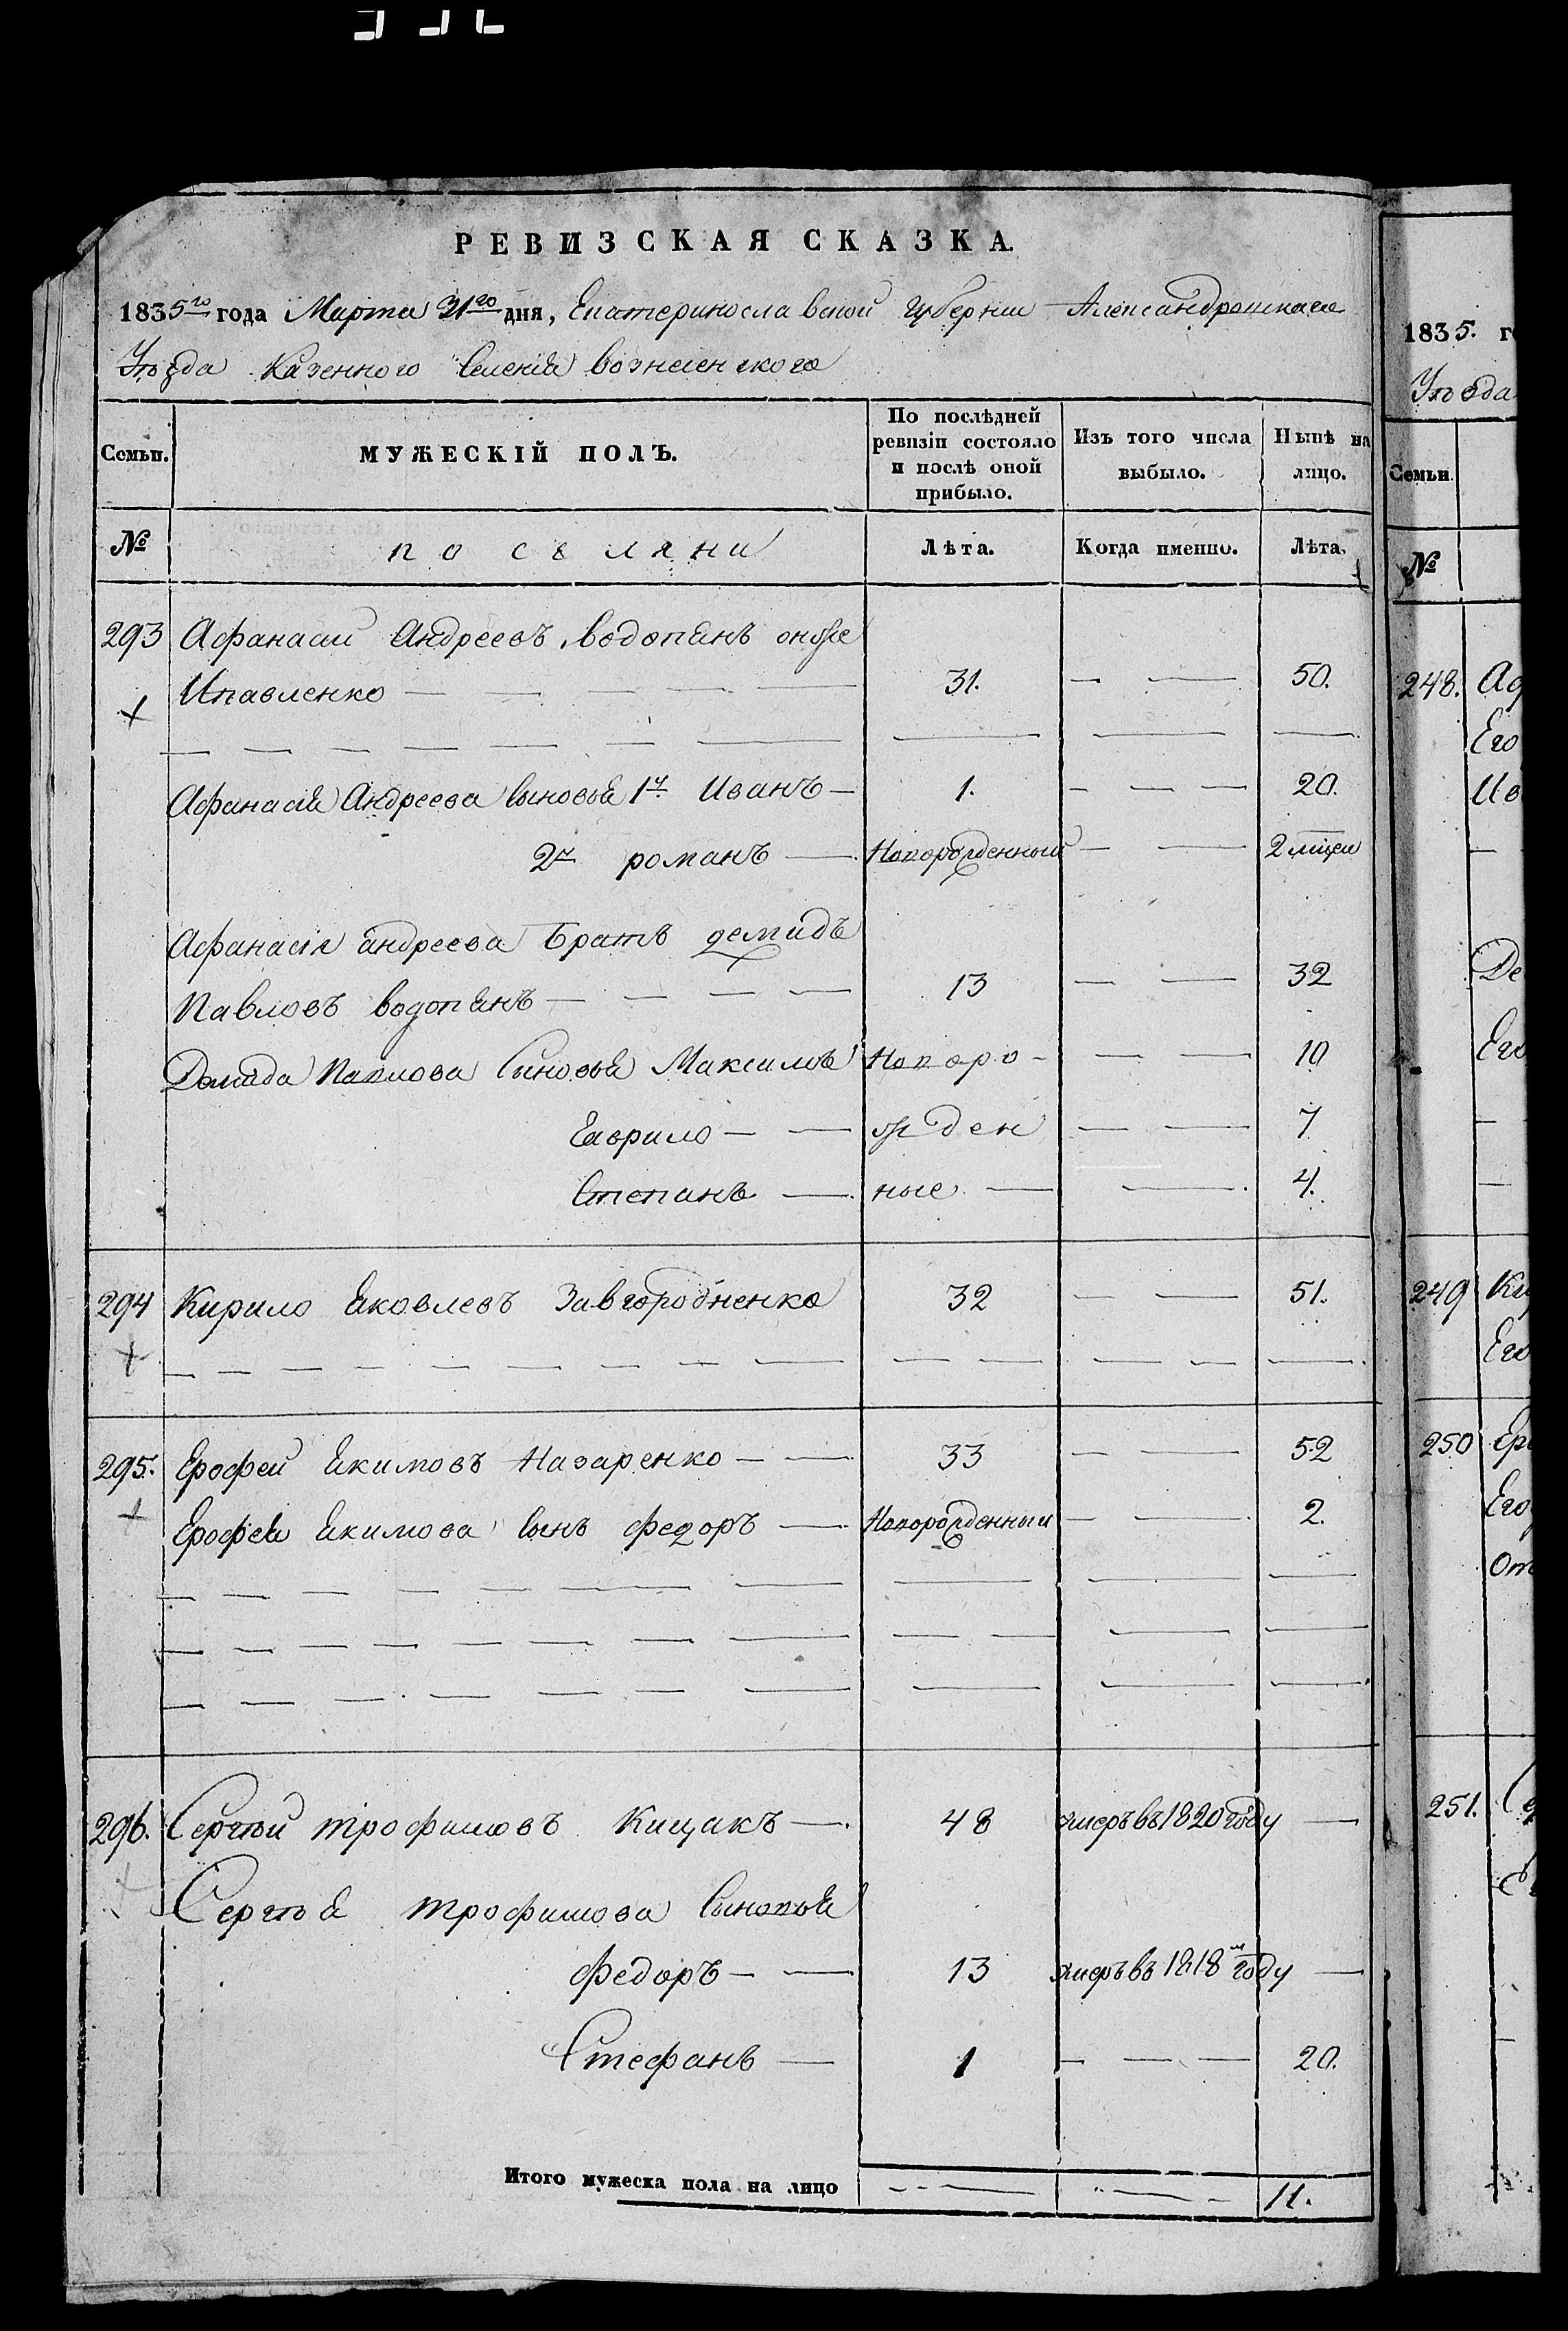 РЕВИЗСКАЯ СКАЗКА.
1835го года Марта 31го дня, Екатеринославской Губернии Александровскаго
Уѣзда Казенного Селения вознесенского
Семьи. МУЖЕСКІЙ ПОЛЪ. По послѣдней ревизіи состояло и послѣ оной прибыло. Изъ того числа выбыло. Нынѣ на лицо.
№ поселяни Лѣта. Когда именно. Лѣта.
293 Афанасий Андреевъ водопянъ онже
Ипавленко — 31. — 50.
Афанасия Андреева Сыновья 1й Иванъ — 1. — 20.
2й романъ — Новорожденный — 2 мсцеи
Афанасия андреева Братъ демидъ
Павловъ водопянъ — 13 — 32
Демида Павлова Сыновья Максимъ Новоро — 10
Гаврило — жден — 7
Степанъ — ные — 4.
294 Кирило Яковлевъ Завгородненко 32 — 51.
295. Ерофей Якимовъ Назаренко — 33 — 52
Ерофея Якимова Сынъ федоръ — Новорожденный — 2.
296. Сергѣй трофимовъ Кищакъ — 48 умеръ въ 1820 году —
Сергѣя трофимова Сыновья
федоръ — 13 умеръ въ 1818м году —
Стефанъ — 1 — 20.
Итого мужеска пола на лицо — 11.
1835. го
Уѣзда
Семьи.
№
248. Аф
Его
Ив
Де
Его
249 Ки
Его
250 Ер
Его
От
251. Се